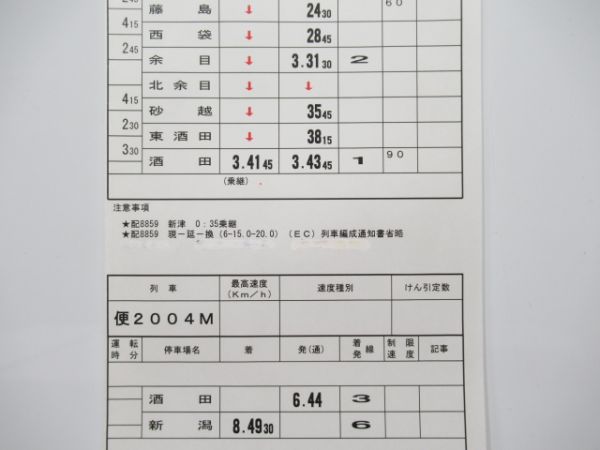 藤島 ↓ 24 30 60
4 15
西袋 ↓ 28 45
2 45
余目 ↓ 3.31 30 2
北余目 ↓ ↓
4 15
砂越 ↓ 35 45
2 30
東酒田 ↓ 38 15
3 30
酒田 3.41 45 3.43 45 1 90
(乗継)
注意事項
★配8859 新津 0:35乗継
★配8859 現-延-換(6-15.0-20.0)(EC)列車編成通知書省略
列車 最高速度(Km/h) 速度種別 けん引定数
便2004M
運転時分 停車場名 着 発(通) 着発線 制限速度 記事
酒田 6.44 3
新潟 8.49 30 6